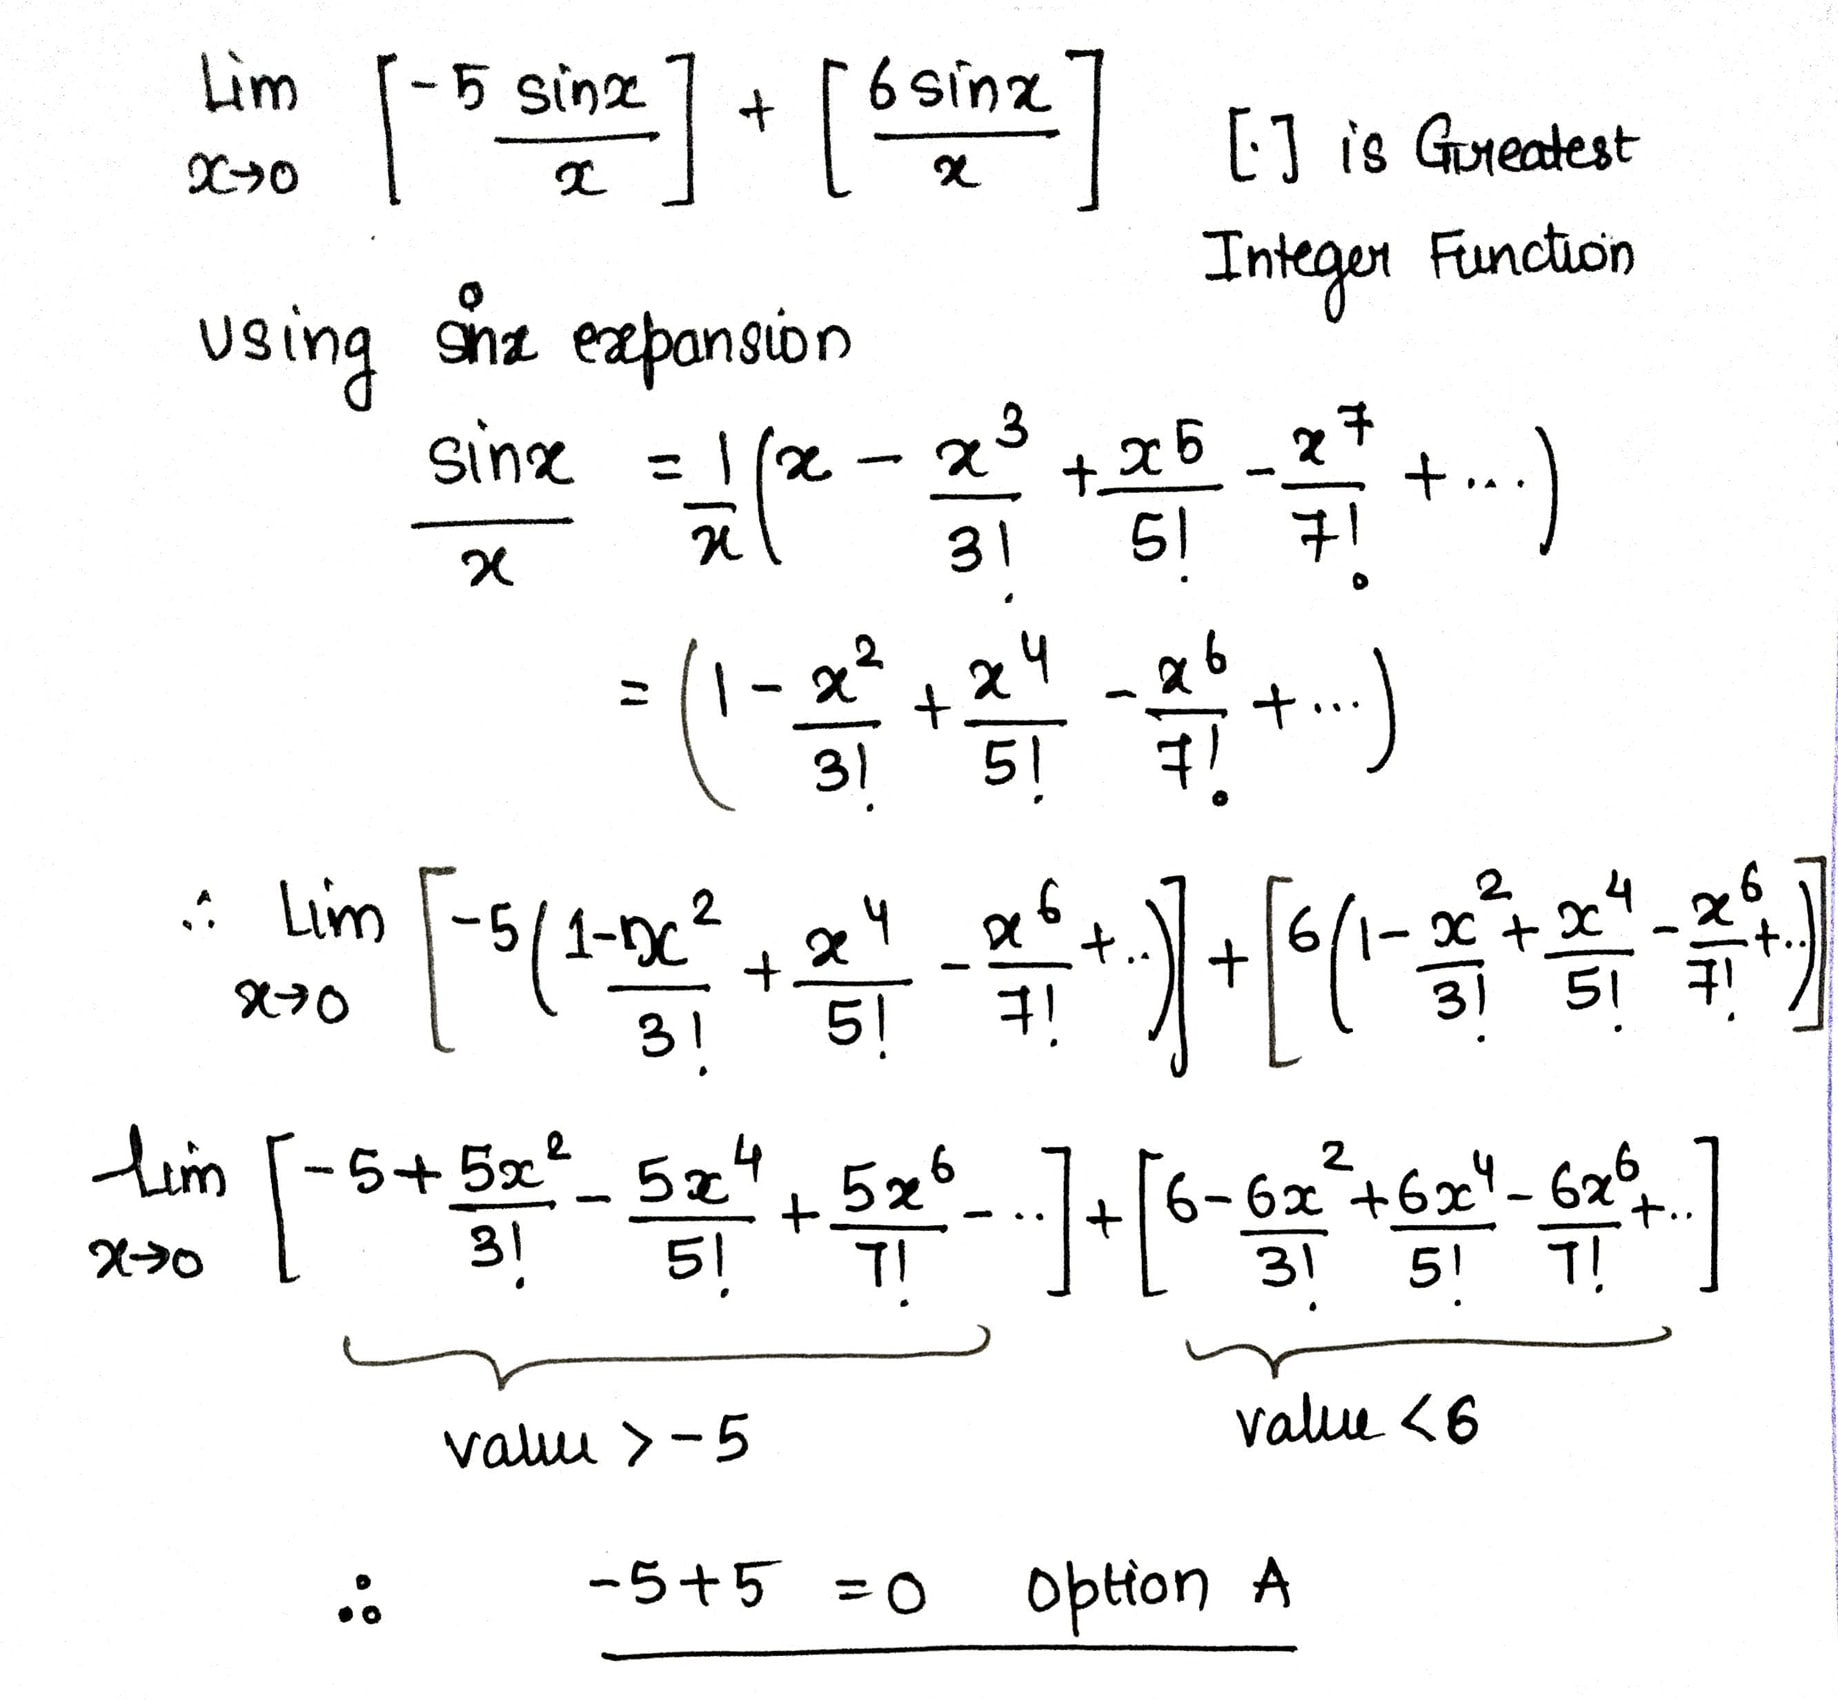 Lim x→0 [-5 sinx/x] + [6 sinx/x] [.] is Greatest
Integer Function
using sinx expansion
sinx/x = 1/x (x - x^3/3! + x^5/5! - x^7/7! + ...)
= (1 - x^2/3! + x^4/5! - x^6/7! + ...)
∴ Lim x→0 [-5(1-x^2/3! + x^4/5! - x^6/7! + ..)] + [6(1 - x^2/3! + x^4/5! - x^6/7! + ..)]
Lim x→0 [-5 + 5x^2/3! - 5x^4/5! + 5x^6/7! - ..] + [6 - 6x^2/3! + 6x^4/5! - 6x^6/7! + ..]
value > -5 value < 6
∴ -5+5 = 0 Option A